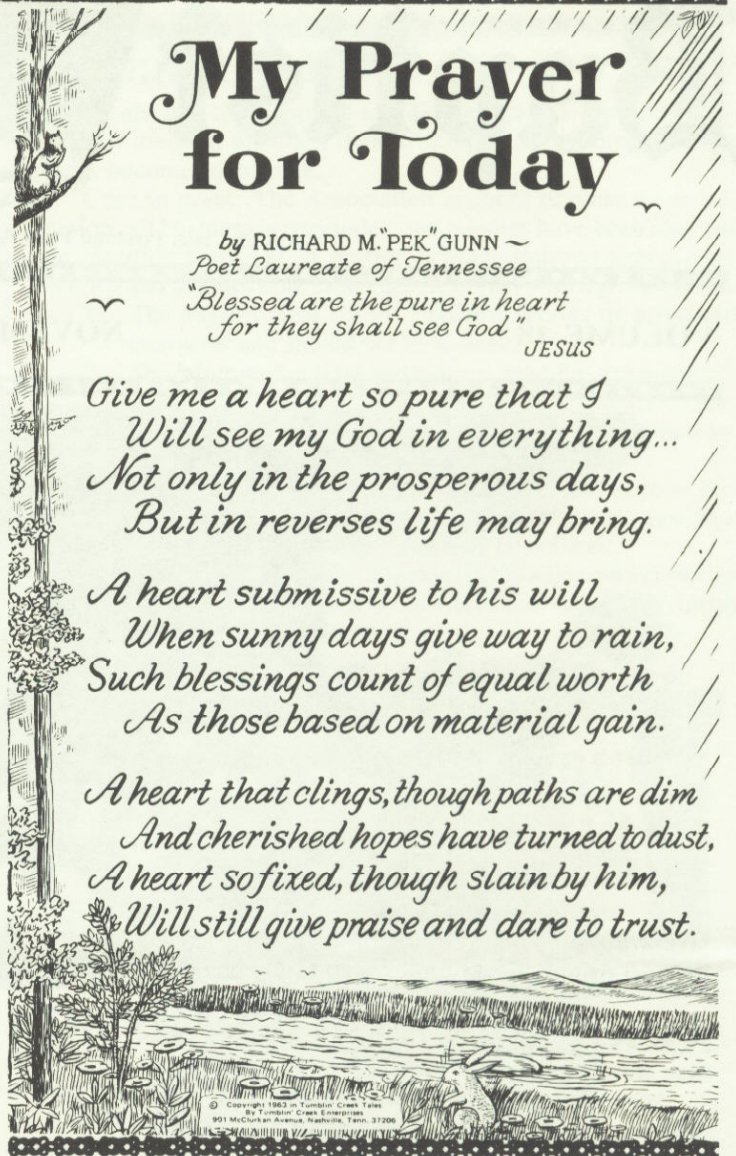 My Prayer
for Today
by RICHARD M. "PEK" GUNN ~
Poet Laureate of Tennessee
"Blessed are the pure in heart
for they shall see God"
JESUS
Give me a heart so pure that I
Will see my God in everything...
Not only in the prosperous days,
But in reverses life may bring.
A heart submissive to his will
When sunny days give way to rain,
Such blessings count of equal worth
As those based on material gain.
A heart that clings, though paths are dim
And cherished hopes have turned to dust,
A heart so fixed, though slain by him,
Will still give praise and dare to trust.
© Copyright 1963 in Tumblin' Creek Tales
By Tumblin' Creek Enterprises
901 McClurkan Avenue, Nashville, Tenn. 37206